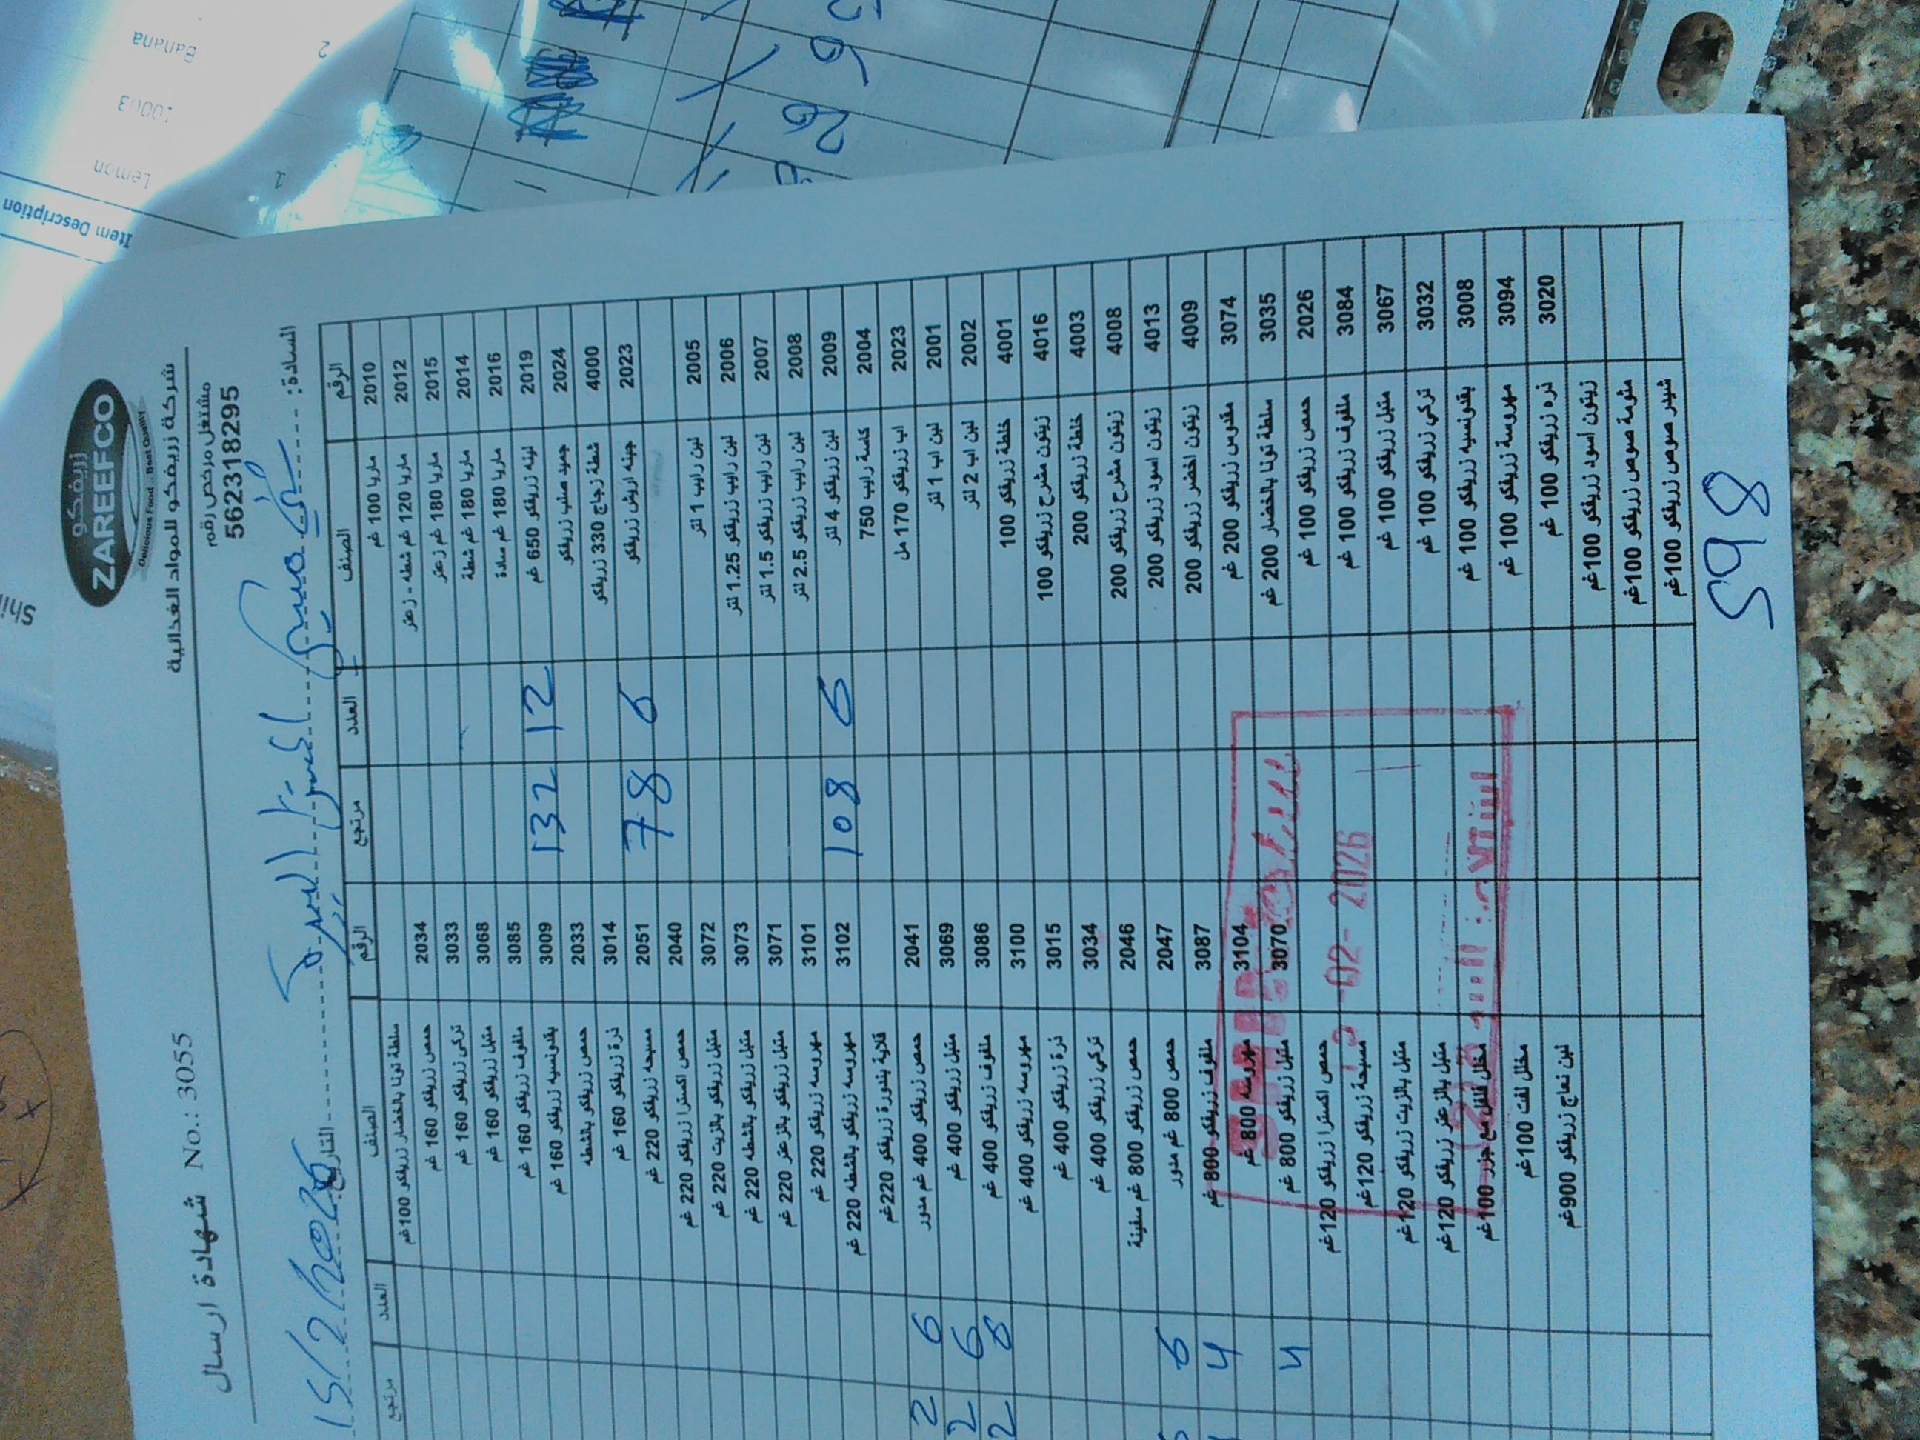 زريفكو
ZAREEFCO
Delicious Food .. Best Quality
شركة زريفكو للمواد الغذائية
مشتغل مرخص رقم
562318295
شهادة ارسال No.: 3055
السادة:
التاريخ: 15/2/2026
الرقم الصنف العدد مرتجع الرقم الصنف العدد مرتجع
2010 ماريا 100 غم
2012 ماريا 120 غم شطة - زعتر
2015 ماريا 180 غم زعتر
2014 ماريا 180 غم شطة
2016 ماريا 180 غم سادة
2019 لبنه زريفكو 650 غم 12 132
2024 جميد صلب زريفكو
4000 شطة زجاج 330 زريفكو
2023 جبنه اريش زريفكو 6 78
2005 لبن رايب 1 لتر
2006 لبن رايب زريفكو 1.25 لتر
2007 لبن رايب زريفكو 1.5 لتر
2008 لبن رايب زريفكو 2.5 لتر
2009 لبن زريفكو 4 لتر 6 108
2004 كاسة رايب 750
2023 اب زريفكو 170 مل
2001 لبن اب 1 لتر
2002 لبن اب 2 لتر
4001 خلطة زريفكو 100
4016 زيتون مشرح زريفكو 100
4003 خلطة زريفكو 200
4008 زيتون مشرح زريفكو 200
4013 زيتون اسود زريفكو 200
4009 زيتون اخضر زريفكو 200
3074 مقدوس زريفكو 200 غم
3035 سلطة تونا بالخضار 200 غم
2026 حمص زريفكو 100 غم
3084 ملفوف زريفكو 100 غم
3067 متبل زريفكو 100 غم
3032 تركي زريفكو 100 غم
3008 بقدونسيه زريفكو 100 غم
3094 مهروسة زريفكو 100 غم
3020 ذره زريفكو 100 غم
زيتون اسود زريفكو 100غم
مثومة صوص زريفكو 100غم
شيدر صوص زريفكو 100غم
سلطة تونا بالخضار زريفكو 100غم
2034 حمص زريفكو 160 غم
3033 تركي زريفكو 160 غم
3068 متبل زريفكو 160 غم
3085 ملفوف زريفكو 160 غم
3009 بقدونسيه زريفكو 160 غم
2033 حمص زريفكو بالشطه
3014 ذرة زريفكو 160 غم
2051 مسبحه زريفكو 220 غم
2040 حمص اكسترا زريفكو 220 غم
3072 متبل زريفكو بالزيت 220 غم
3073 متبل زريفكو بالشطه 220 غم
3071 متبل زريفكو بالزعتر 220 غم
3101 مهروسه زريفكو 220 غم
3102 مهروسه زريفكو بالشطه 220 غم
قلاية بندورة زريفكو 220غم
2041 حمص زريفكو 400 غم مدور 6 2
3069 متبل زريفكو 400 غم 6 2
3086 ملفوف زريفكو 400 غم 8 2
3100 مهروسه زريفكو 400 غم
3015 ذرة زريفكو 400 غم
3034 تركي زريفكو 400 غم
2046 حمص زريفكو 800 غم سفينة
2047 حمص 800 غم مدور 6
3087 ملفوف زريفكو 800 غم 4
3104 مهروسه 800 غم
3070 متبل زريفكو 800 غم 4
حمص اكسترا زريفكو 120غم
مسبحة زريفكو 120غم
متبل بالزيت زريفكو 120غم
متبل بالزعتر زريفكو 120غم
مخلل فلفل مع جزر 100غم
مخلل لفت 100غم
لبن نعاج زريفكو 900غم
-02- 2026
598
Item Description
1
Lemon
10003
2
Banana
26